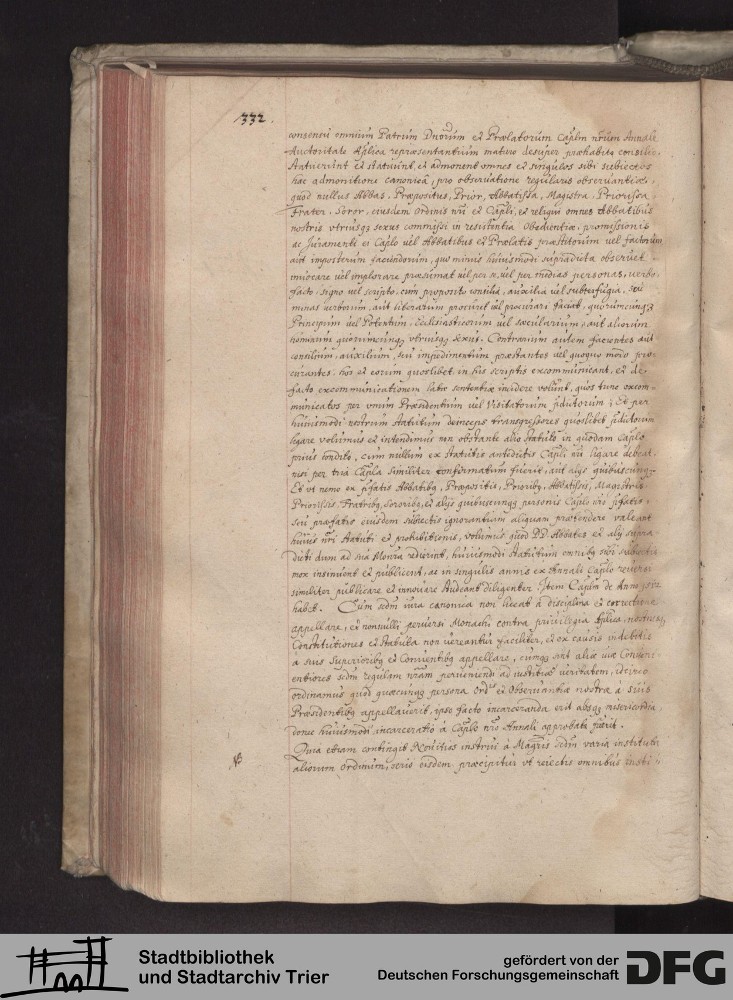 332.
consensu omnium Patrum Dnorum et Prælatorum Caplm nrum Annale
Auctoritate Aplica repræsentantium maturo desuper præhabito consilio
statuerunt et statuunt, et admonent omnes et singulos sibi subiectos
hac admonitione canonica, pro observatione regularis observantiæ,
quod nullus Abbas, Præpositus, Prior, Abbatissa, Magistra, Priorissa,
Frater, Soror, eiusdem Ordinis nri et Capli, et reliqui omnes Abbatibus
nostris utriusq3 sexus commissi in resistentia Obedientiæ, promissionis
ac Juramenti ei Caplo vel Abbatibus et Prælatis præstitorum vel factorum
aut imposterum faciendorum, quo minus huiusmodi supradicta observet
invocare vel implorare præsumat vel per se, vel per medias personas, verbo
facto, signo vel scripto, cum proposito consilia, auxilia vel subterfugia, seu
minas verborum, aut literarum procuret vel procurari faciat, quorumcunq3
Principum vel Potentum, Ecclesiasticorum vel sæcularium, aut aliorum
hominum quorumcunq3 utriusq3 sexus. Contrarium autem facientes aut
consilium, auxilium, seu impedimentum præstantes vel quoquo modo pro-
curantes, hos et eorum quoslibet in his scriptis excommunicant, et de
facto excommunicationem latæ sententiæ incidere volunt, quos tunc excom-
municatos per unum Præsidentium vel Visitatorum fidutorum; Et per
huiusmodi nostrum statutum deinceps transgressores quoslibet
ligare volumus et intendimus non obstante alio statuto in quodam Caplo
prius condito, cum nullum ex statutis antedictis Capli nri ligare debeat
nisi per tria Capla similiter confirmatum fuerit, aut alijs quibuscunq3
Et ut nemo ex pfatis Abbatibq, Præpositis, Prioribq, Abbatissis, Magistris,
Priorissis, Fratribq, Sororibq, et alijs quibuscunq3 personis Caplo nri pfatis,
seu præfato eiusdem subiectis ignorantiam aliquam prætendere valeant
huius nri statuti et prohibitionis, volumus quod P.D. Abbates et alij supra
dicti dum ad sua Monria redierint, huiusmodi statutum omnibq sibi subiectis
mox insinuent et publicent, ac in singulis annis ex Annali Caplo reversi
similiter publicare et innovare studeant diligenter. Item Caplm de Anno
habet. Cum sedm iura canonica non liceat a disciplina et correctione
appellare, et nonnulli perversi Monachi contra privilegia Aplica, nostrasq3
Constitutiones et statuta non vereantur faciliter, et ex causis indebitis
a suis superioribq et Conventibq appellare, cumq3 sint aliæ viæ Conveni-
entiores sedm regulam nram perveniendi ad iustitiæ veritatem, ideirco
ordinamus quod quæcunq3 persona Ord. et Observantiæ nostræ a suis
Præsidentibq appellaverit, ipso facto incarceranda erit absq3 misericordia,
donec huiusmodi incarceratio a Caplo nro Annali approbata fuerit.
Quia etiam contingit Novitias instrui a Magris sedm varia instituta
aliorum Ordinum, serio eisdem præcipitur ut reiectis omnibus
NB
Stadtbibliothek
und Stadtarchiv Trier
gefördert von der
Deutschen Forschungsgemeinschaft
DFG